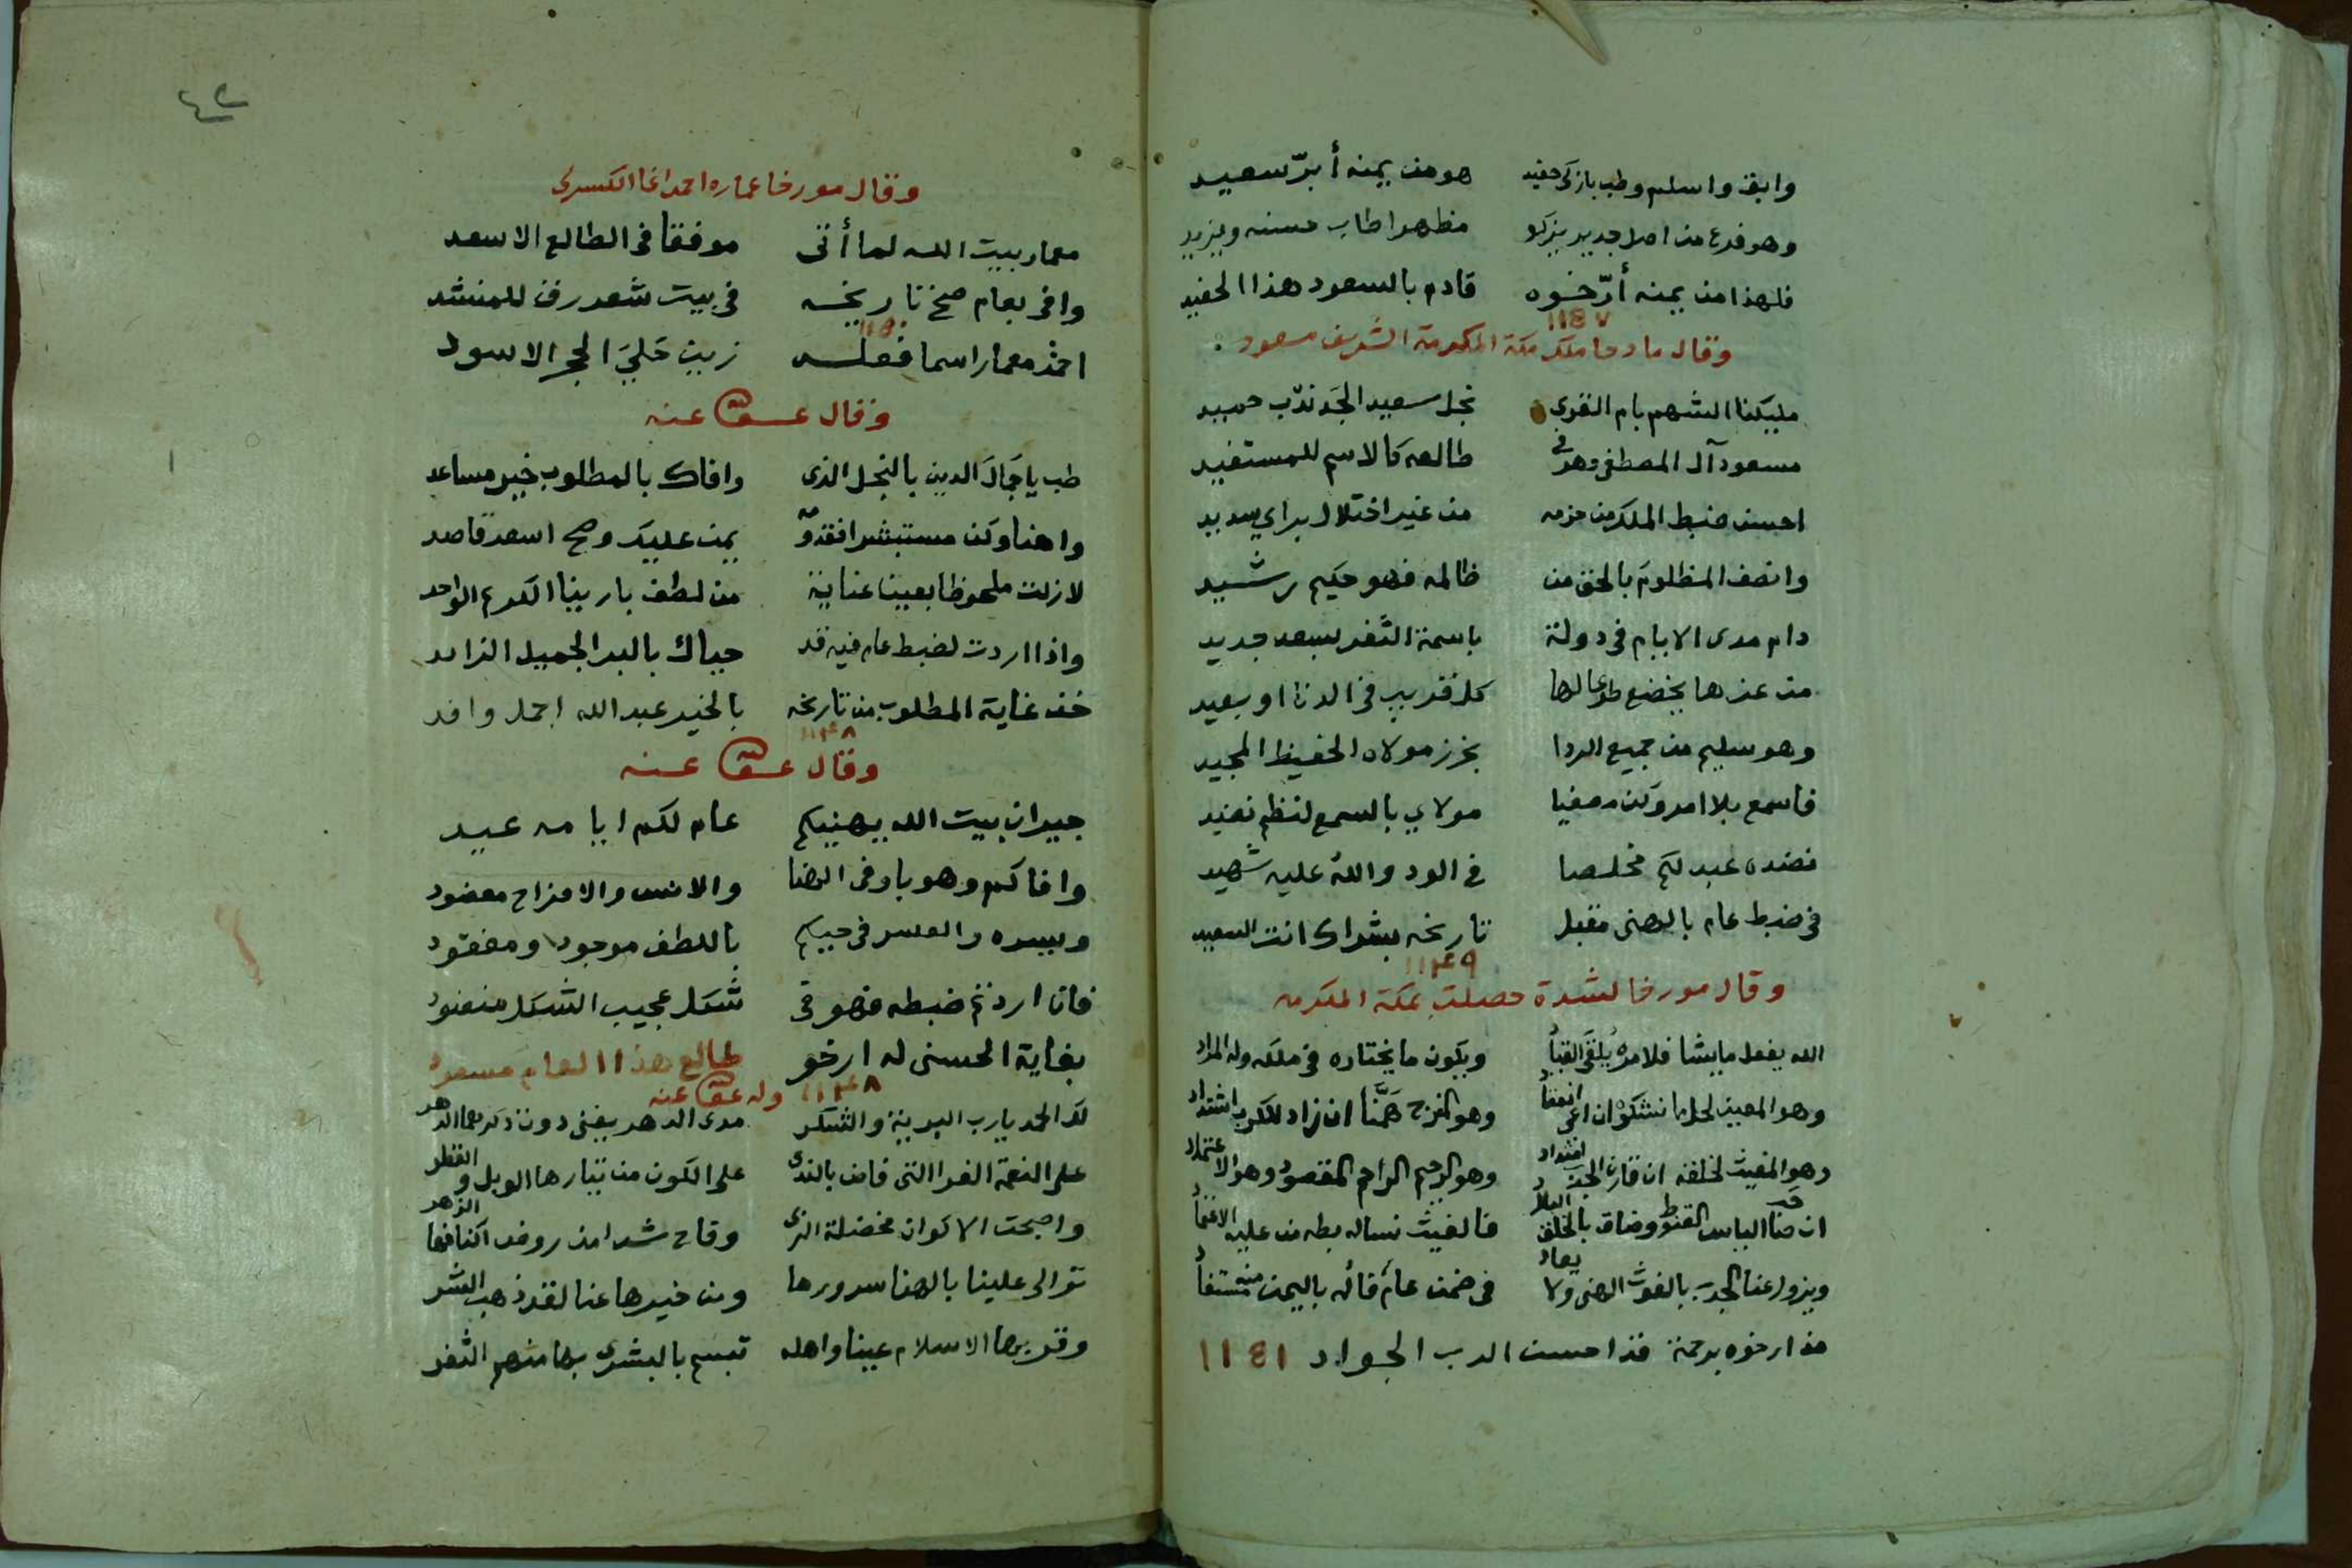 وابق واسلم وطب بازكى حفيد هو من يمنه أبرّ سعيد
وهو فرع من اصل جديد يزكو مظهرا طاب حسنه ويزيد
فلهذا من يمنه أرّخوه قادم بالسعود هذا الحفيد
١١٤٧
وقال مادحا ملك مكة المكرمة الشريف مسعود
مليكنا الشهم بام القرى نجل سعيد الجد ندب حميد
مسعود آل المصطفى وهو في طالعه كالاسم للمستفيد
احسن ضبط الملك من حزمه من غير اختلال براي سديد
وانصف المظلوم بالحق من ظالمه فهو حكيم رشيد
دام مدى الايام في دولة باسمة الثغر بسعد جديد
من عزها يخضع طوعا لها كل قريب في الدنا او بعيد
وهو سليم من جميع الردا بحرز مولاه الحفيظ المجيد
فاسمع بلا امر وكن مصغيا مولاي بالسمع لنظم نضيد
نضده عبد لكم مخلصا في الود والله عليه شهيد
في ضبط عام بالهنى مقبل تاريخه بشراك انت السعيد
١١٤٩
وقال مورخا لشدة حصلت بمكة المكرمه
الله يفعل ما يشا فلامره يُلقى القياد ويكون ما يختاره في ملكه وله المراد
وهو المعين لحل ما نشكوه ان اعي انعقاد وهو المفرج هَمَّنا ان زاد للكرب اشتداد
وهو المغيث لخلقه ان قارن الجدب امتداد وهو الرحيم الراحم المقصود وهو الاعتماد
ان ضنا الياس القنوط وضاق بالخلق البلاد فالغيث نساله بطه من عليه الاعتماد
ويزول عنا الجدب بالغوث الهني ولا يعاد في ضمن عام فأله باليمن منه مستفاد
مذ ارخوه برحمة قد احسن الرب الجواد ١١٤١
٤٢
وقال مورخا عماره احمد اغا الكسركي
معمار بيت الله لما أتى موفقا في الطالع الاسعد
وافى بعام صح تاريخه في بيت شعر رق للمنشد
١١٥٠
احمد معمار اسما فعله زين حَليَ الحجر الاسود
وقال عفى عنه
طب يا جَمالَ الدين بالنجل الذي وافاك بالمطلوب خير مساعد
واهنا وكن مستبشرا فقدومه يمن عليك وصح اسعد قاصد
لازلت ملحوظا بعين عناية من لطف بارينا الكريم الواحد
واذا اردت لضبط عام فيه قد حباك بالبر الجميل الزايد
خذ غاية المطلوب من تاريخه بالخير عبد الله اجمل وافد
١١٤٨
وقال عفى عنه
جيران بيت الله يهنيكم عام لكم ايامه عيد
وافاكم وهو باوفى الهنا والانس والافراح معضود
ويسره والعسر في حيكم باللطف موجود ومفقود
فان اردتم ضبطه فهو في شكل عجيب الشكل منضود
بغاية الحسنى له ارخو طالع هذا العام مسعود
١١٤٨ وله عفى عنه
لك الحمد يارب البرية والشكر مدى الدهر يفنى دون ذكرهما الدهر
على النعمة الغرا التي فاض بالندى على الكون من تيارها الوبل والقطر
واصبحت الاكوان مخضلة الثرى وفاح شذا من روض اكنافها الزهر
توالى علينا بالهنا سرورها ومن خيرها عنا لقد ذهب الشر
وقر بها الاسلام عينا واهله تبسم بالبشرى بها منهم الثغر